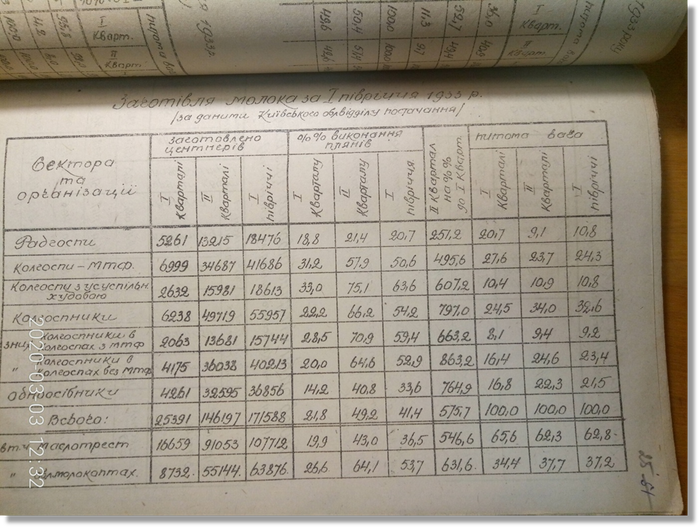 Заготівля молока за I півріччя 1933 р.
/за даними Київського облвідділу постачання/
Сектора та організації | заготовлено центнерів | %% виконання плянів | II квартал на %% до I кварт. | питома вага
I кварталі | II кварталі | I півріччі | I кварталу | II кварталу | I півріччя | I кварталі | II кварталі | I півріччі
Радгоспи 5261 13215 18476 18,8 21,4 20,7 251,2 20,7 9,1 10,8
Колгоспи – МТФ. 6999 34687 41686 31,2 57,9 50,6 495,6 27,6 23,7 24,3
Колгоспи з усуспільн. худобою 2632 15981 18613 33,0 75,1 63,6 607,2 10,4 10,9 10,8
Колгоспники 6238 49719 55957 22,2 66,2 54,2 797,0 24,5 34,0 32,6
з них колгоспники в колгоспах з МТФ 2063 13681 15744 28,5 70,9 59,4 663,2 8,1 9,4 9,2
" колгоспники в колгоспах без МТФ 4175 36038 40213 20,0 64,6 52,9 863,2 16,4 24,6 23,4
Одноосібники 4261 32595 36856 14,2 40,8 33,6 764,9 16,8 22,3 21,5
Всього: 25391 146197 171588 21,8 49,2 41,4 575,7 100,0 100,0 100,0
в т.ч. Маслотрест 16659 91053 107712 19,9 43,0 36,5 546,6 65,6 62,3 62,8
" 8732 55144 63876 26,6 64,1 53,7 631,6 34,4 37,7 37,2
2020-03-03 12:32